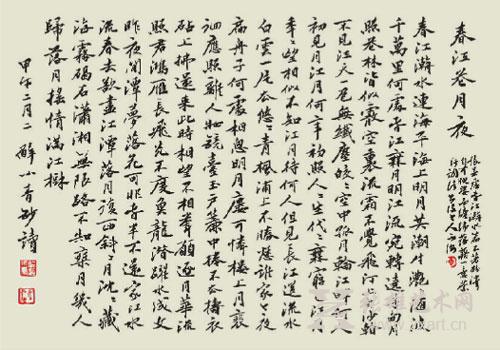 春江花月夜
春江潮水連海平海上明月共潮生灩灩隨波
千萬里何處春江無月明江流宛轉遶芳甸月
照花林皆似霰空裏流霜不覺飛汀上白沙看
不見江天一色無纖塵皎々空中孤月輪江畔何人
初見月江月何年初照人人生代代無窮已江月
年年望相似不知江月待何人但見長江送流水
白雲一片去悠々青楓浦上不勝愁誰家今夜
扁舟子何處相思明月樓可憐樓上月裴
徊應照離人妝鏡臺玉戶簾中捲不去擣衣
砧上拂還來此時相望不相聞願逐月華流
照君鴻雁長飛光不度魚龍潛躍水成文
昨夜閒潭夢落花可憐春半不還家江水
流春去欲盡江潭落月復西斜々月沉々藏
海霧碣石瀟湘無限路不知乘月幾人
歸落月搖情滿江樹
甲午二月二 解小青抄讀